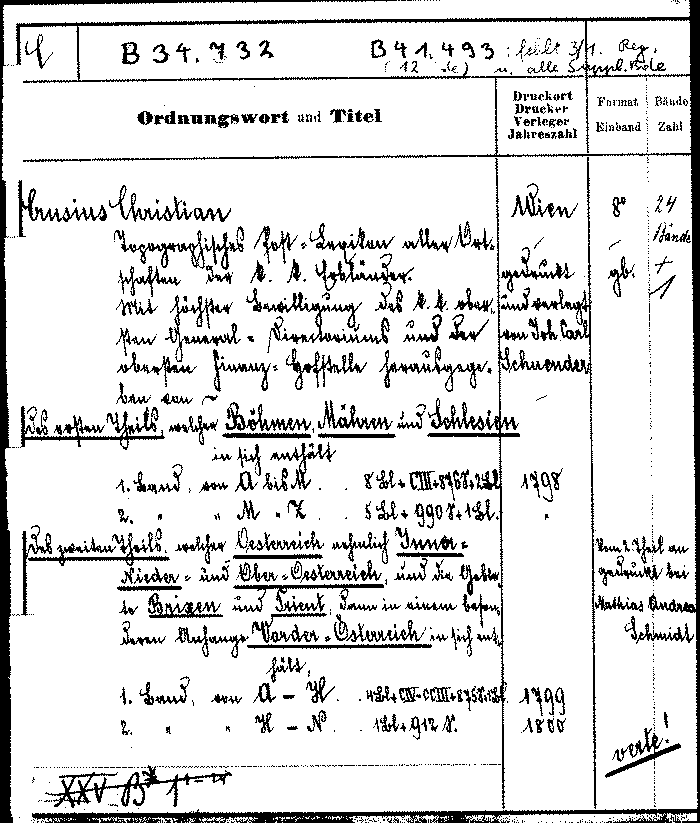 B 34.732 B 41.493 : fehlt 3/1. Reg.
(12 de) u. alle Suppl. Bde
Ordnungswort und Titel
Druckort
Drucker
Verleger
Jahreszahl
Format
Einband
Bände
Zahl
Crusius Christian Wien 8° 24
Bände
Topographisches Post-Lexikon aller Ort-
schaften der k. k. Erbländer. gedruckt gb. +
Mit höchster Bewilligung des k. k. ober- und verlegt 1
sten General-Directoriums und der von Joh Carl
obersten Finanz-Hofstelle herausgege- Schuender
ben von ~
Des ersten Theils, welcher Böhmen, Mähren und Schlesien
in sich enthält
1. Band, von A bis M. 8 Bl + CIII + 876 S + 2 Bl 1798
2. " " M - Z 5 Bl + 990 S + 1 Bl. "
Des zweiten Theils, welcher Oesterreich nehmlich Inner- Vom 2. Theil an
Nieder- und Ober-Oesterreich, und die Gebie- gedruckt bei
te Brixen und Trient, dann in einem beson Mathias Andrea
deren Anhange Vorder-Österreich in sich ent Schmidt
hält,
1. Band, von A - H 1799
2. " " H - N 1 Bl + 912 S. 1800
verte!
XXV B* 1